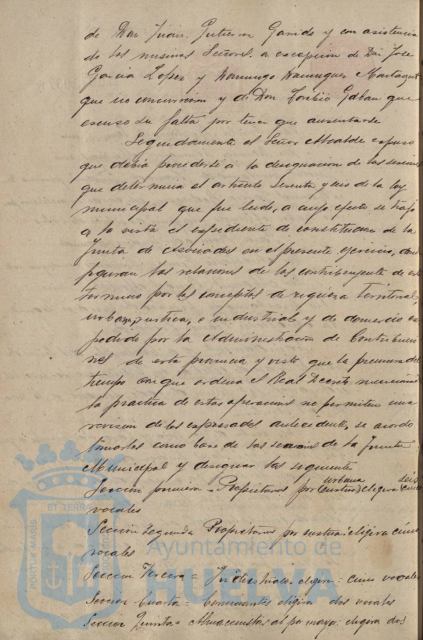 de Don Juan Gutierrez Garrido y con asistencia
de los mismos Señores a escepcion de Don Jose
Garcia Lopez y Domingo Dominguez Marquez
que no concurrieron y de Don Toribio Gaban que
escuso su falta por tener que ausentarse
Seguidamente el Señor Alcalde espuso
que debia procederse a la designacion de las secciones
que determina el articulo sesenta y seis de la ley
municipal que fue leido, a cuyo efecto se trajo
a la vista el espediente de constitucion de la
Junta de Asociados en el presente ejercicio, donde
figuran las relaciones de los contribuyentes de este
termino por los conceptos de riqueza territorial,
urbana, rustica, e industrial y de comercio es
pedido por la Administracion de Contribucio
nes de esta provincia y visto que la premura del
tiempo con que ordena el Real Decreto
la practica de estas operaciones no permiten una
revision de los espresados antecedentes, se acordo
tomarlos como base de las secciones de la Junta
Municipal y designar las siguientes
Seccion primera = Propietarios por urbana: eligira seis
vocales
Seccion segunda Propietarios por rustica: eligira cinco
vocales
Seccion Tercera = Industriales eligira: cinco vocales
Seccion Cuarta = Comerciantes eligira dos vocales
Seccion Quinta = Almacenistas al por mayor: eligira dos
PORTUS MARIS ET TERRÆ
Ayuntamiento de
HUELVA